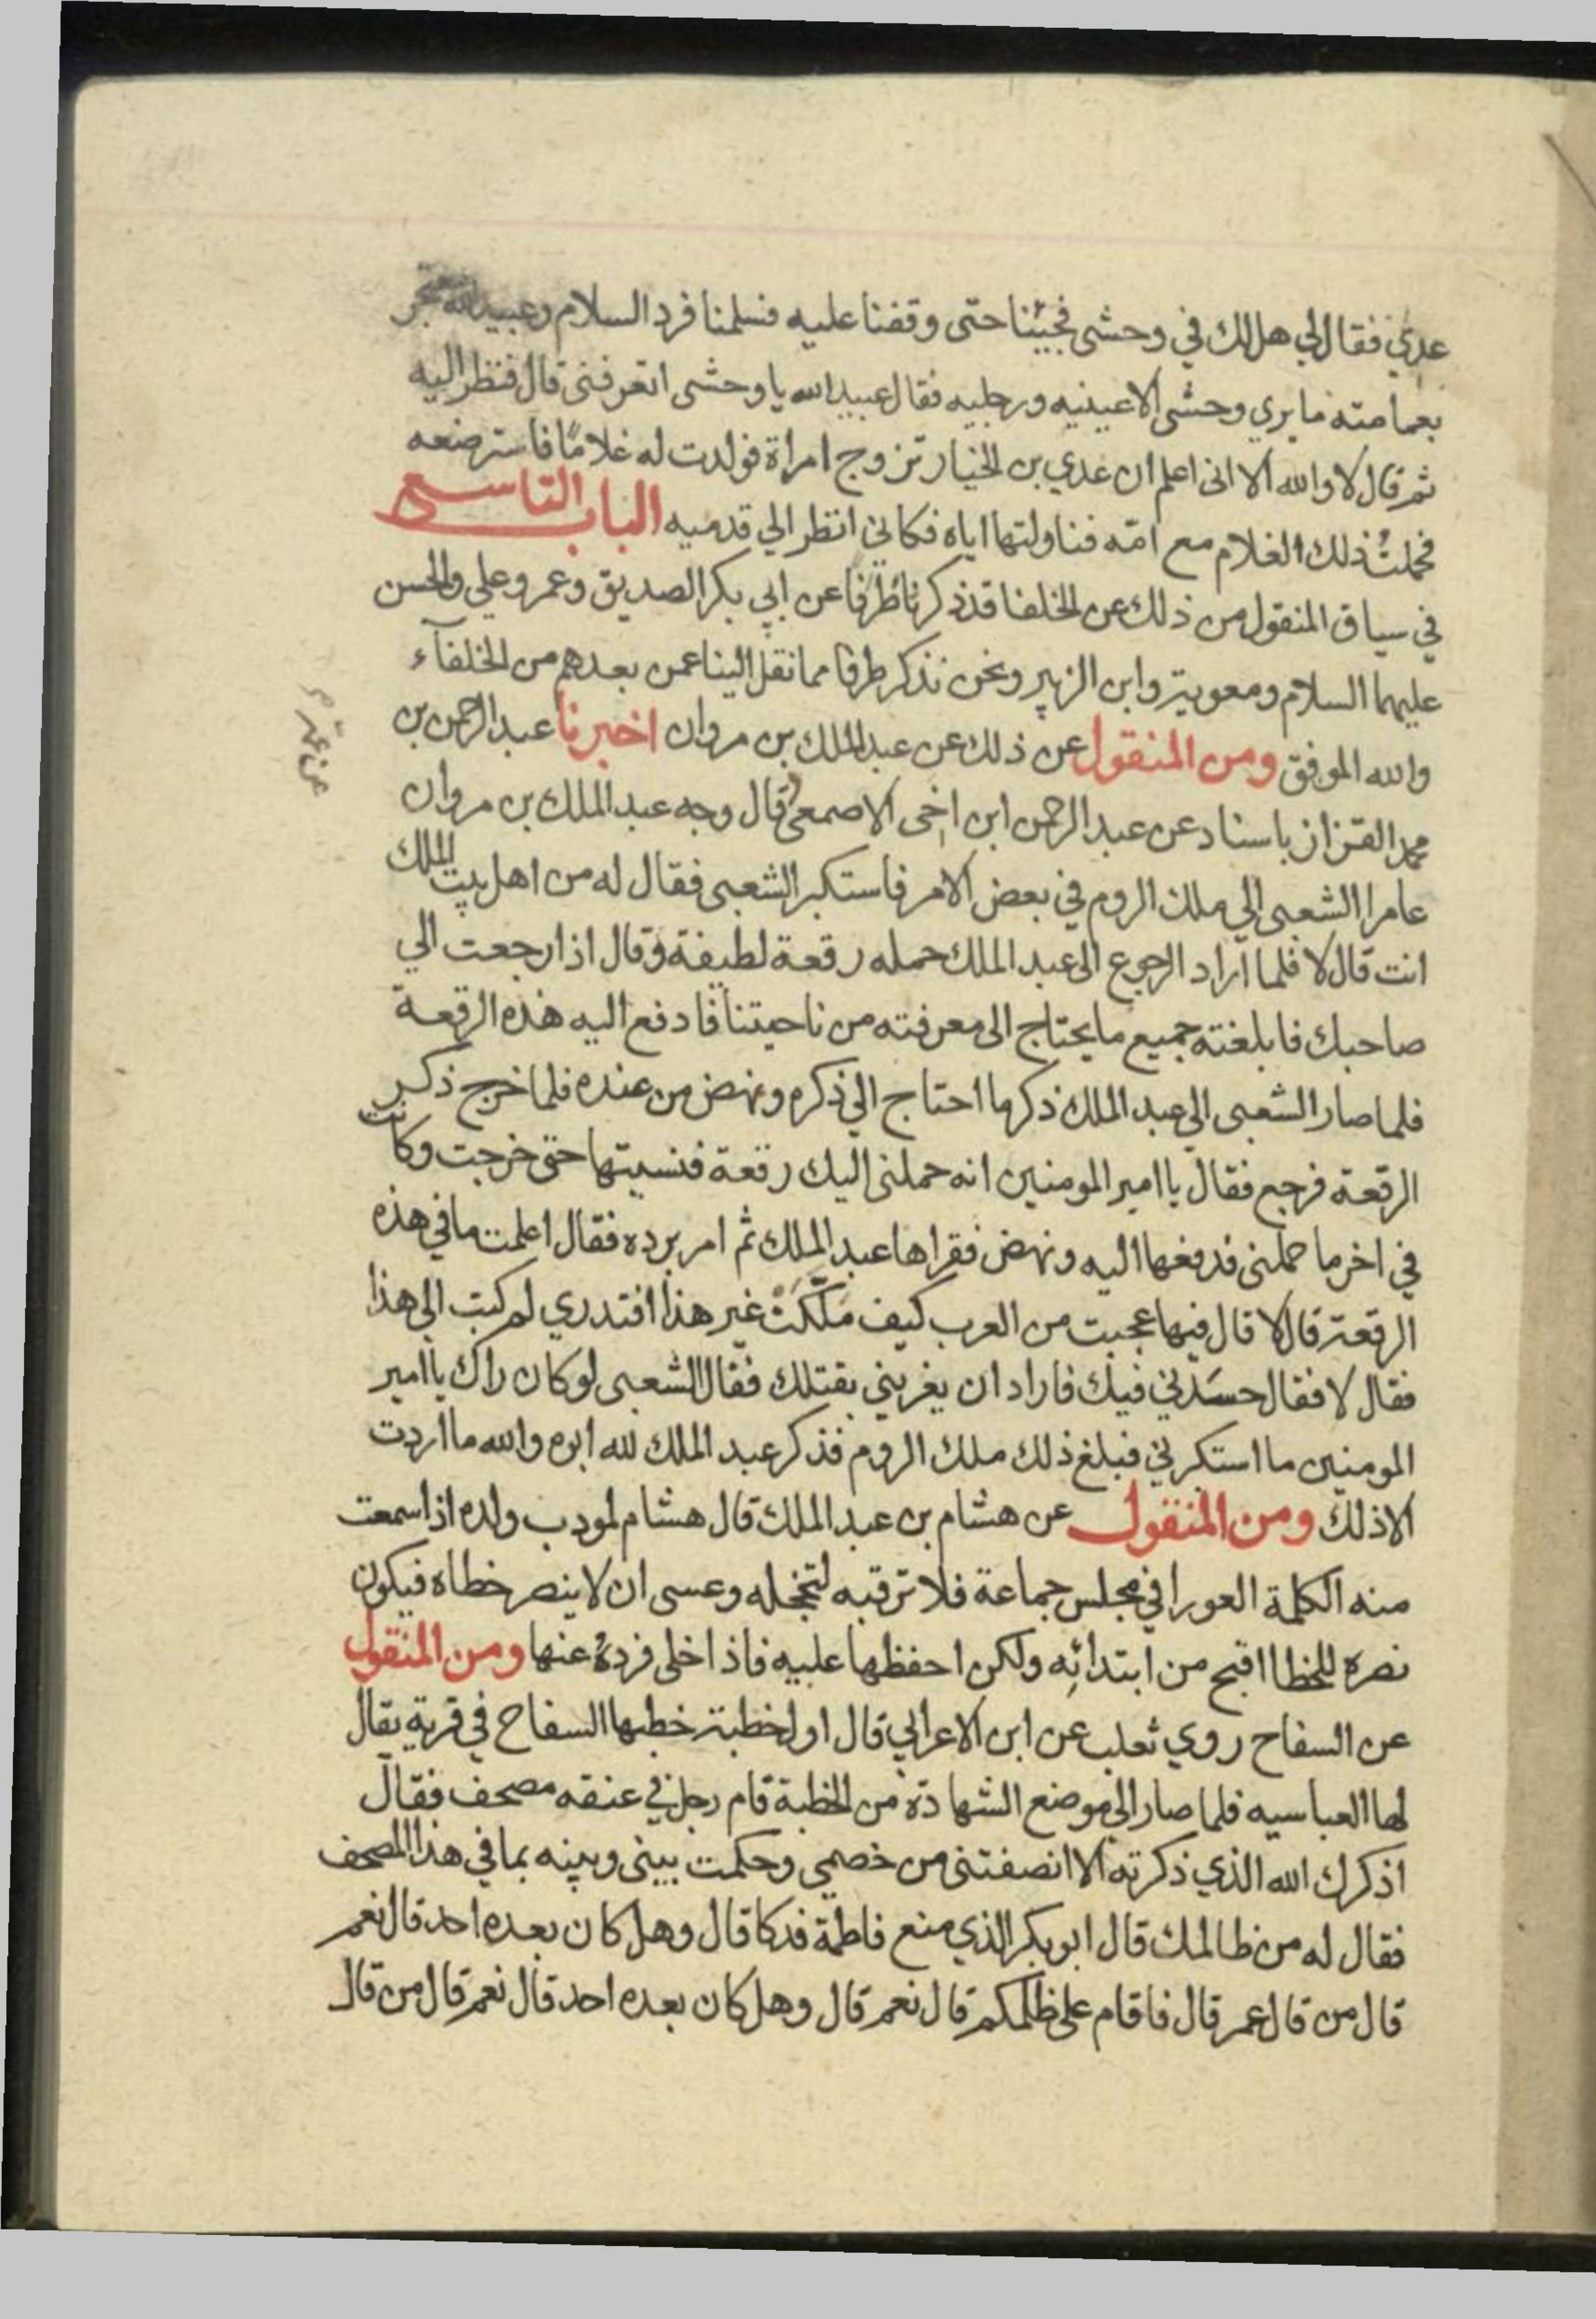 عدي فقال لي هل لك في وحشى فجيئنا حتى وقفنا عليه فسلمنا فرد السلام وعبيد الله معتجر
بعمامته ما يري وحشى الا عينيه ورجليه فقال عبيد الله يا وحشى اتعرفنى قال فنظر اليه
ثم قال لا والله الا انى اعلم ان عدي بن الخيار تزوج امراة فولدت له غلامًا فاسترضعه
فحملتُ ذلك الغلام مع امّه فناولتها اياه فكاني انظر الي قدميه الباب التاسع
في سياق المنقول من ذلك عن الخلفا قد ذكرنا طرفا عن ابي بكر الصديق وعمر وعلي والحسن
عليهما السلام ومعوية وابن الزبير ونحن نذكر طرفا مما نقل الينا عمن بعدهم من الخلفآء
والله الموفق ومن المنقول عن ذلك عن عبد الملك بن مروان اخبرنا عبد الرحمن بن
محمد القزاز باسناد عن عبد الرحمن ابن اخى الاصمعى قال وجه عبد الملك بن مروان
عن عمّه
عامرا الشعبى الي ملك الروم في بعض الامر فاستكبر الشعبى فقال له من اهل بيت الملك
انت قال لا فلما اراد الرجوع الى عبد الملك حمله رقعة لطيفة وقال اذا رجعت الي
صاحبك فابلغته جميع ما يحتاج الى معرفته من ناحيتنا فادفع اليه هذه الرقعة
فلما صار الشعبى الي عبد الملك ذكر ما احتاج الي ذكره ونهض من عنده فلما خرج ذكر
الرقعة فرجع فقال يا امير المومنين انه حملنى اليك رقعة فنسيتها حتى خرجت وكانت
في اخر ما حملنى فدفعها اليه ونهض فقراها عبد الملك ثم امر برده فقال اعلمت ما في هذه
الرقعة قال لا قال فيها عجبت من العرب كيف مَلّكَتْ غير هذا افتدري لم كتب الى هذا
فقال لا فقال حسَدني فيك فاراد ان يغريني بقتلك فقال الشعبى لو كان راك يا امير
المومنين ما استكرني فبلغ ذلك ملك الروم فذكر عبد الملك لله ابوه والله ما اردت
الا ذلك ومن المنقول عن هشام بن عبد الملك قال هشام لمودب ولده اذا سمعت
منه الكلمة العورا في مجلس جماعة فلا ترقبه لتخجله وعسى ان لا ينصر خطاه فيكون
نصره للخطا اقبح من ابتدائه ولكن احفظها عليه فاذا خلى فردهُ عنها ومن المنقول
عن السفاح روي ثعلب عن ابن الاعرابي قال اول خطبة خطبها السفاح في قرية يقال
لها العباسيه فلما صار الي موضع الشهادة من الخطبة قام رجل في عنقه مصحف فقال
اذكرك الله الذي ذكرته الا انصفتنى من خصمي وحكمت بينى وبينه بما في هذا المصحف
فقال له من ظالمك قال ابو بكر الذي منع فاطمة فدكا قال وهل كان بعده احد قال نعم
قال من قال عمر قال فاقام على ظلمكم قال نعم قال وهل كان بعده احد قال نعم قال من قال